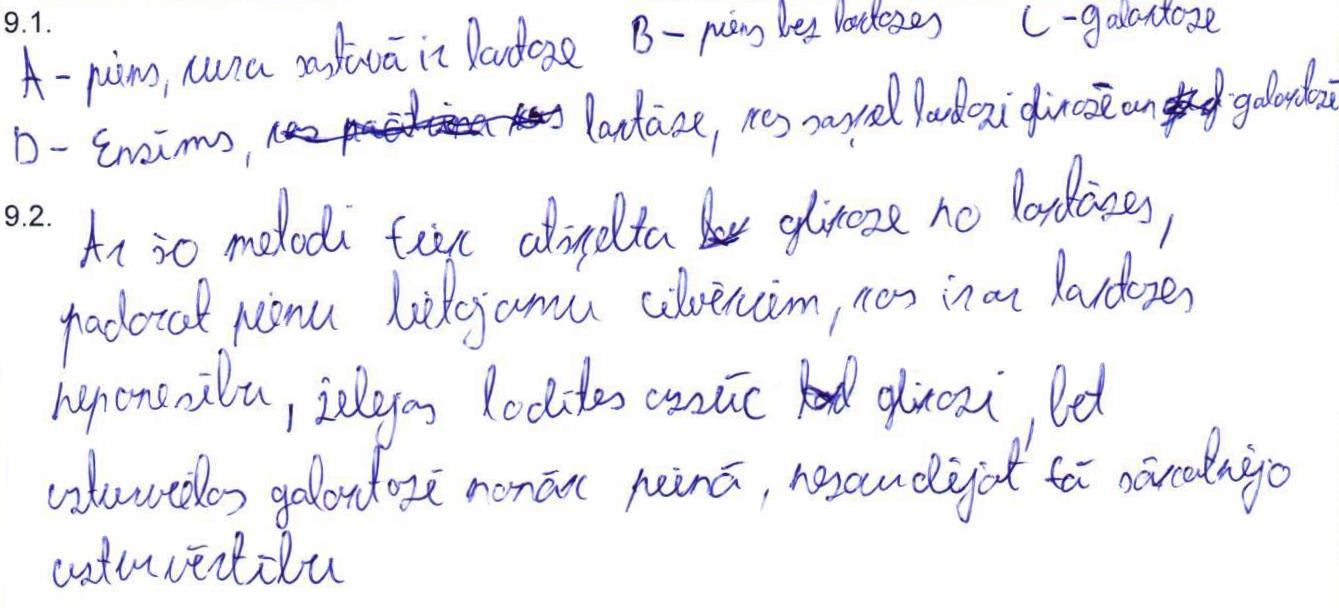 9.1.
A - piens, kura sastāvā ir laktoze B - piens bez laktozes C - galaktoze
D - Enzīms, laktāze, kas sašķeļ laktozi glikozē un galaktozē
9.2.
Ar šo metodi tiek atšķelta glikoze no laktāzes,
padarot pienu lietojamu cilvēkiem, kas ir ar laktozes
nepanesību, želejas lodītes uzsūc glikozi, bet
uzturvielas galaktozē nonāk pienā, nesaudējot tā sākotnējo
uzturvērtību